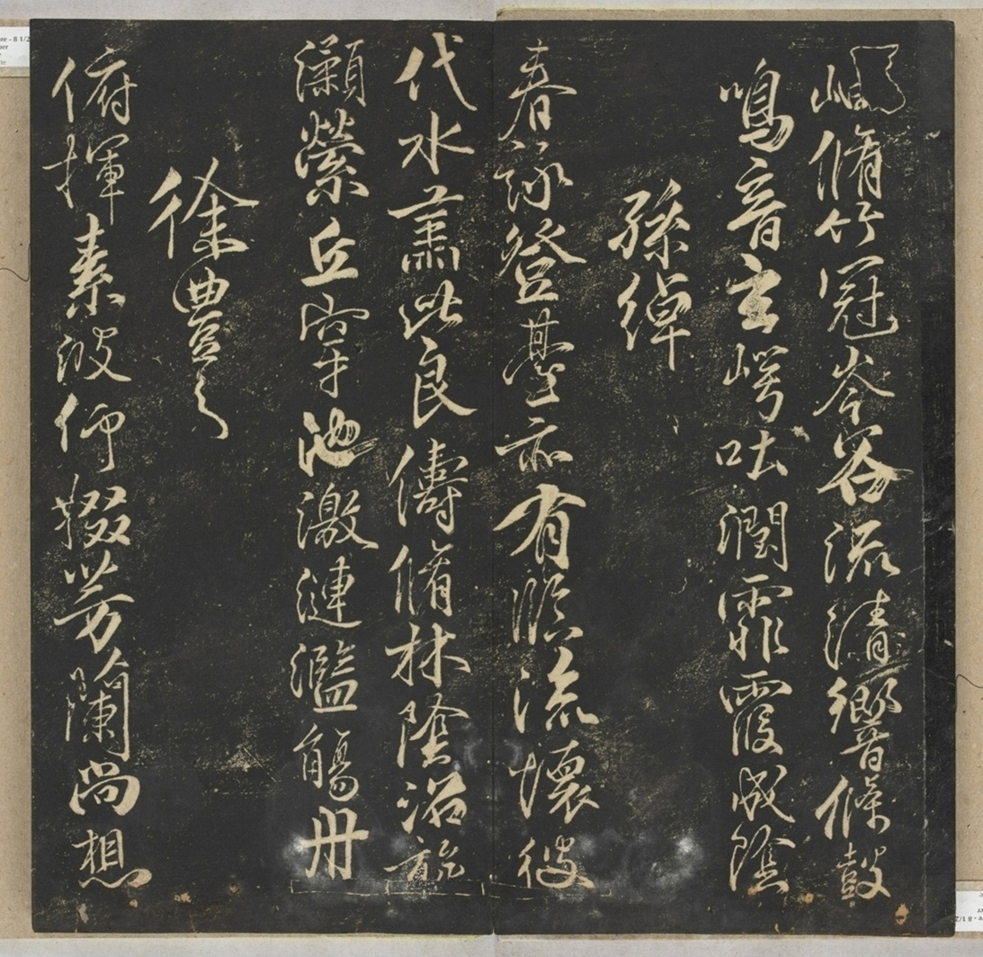 岨脩竹冠岑谷流清響條鼓
鳴音玄崿吐潤霏霞成陰
孫綽
春詠登臺亦有臨流懷彼
代水肅此良儔脩林陰沼旋
瀨縈丘穿池激漣濫觴
徐豐之
俯揮素波仰掇芳蘭尚想